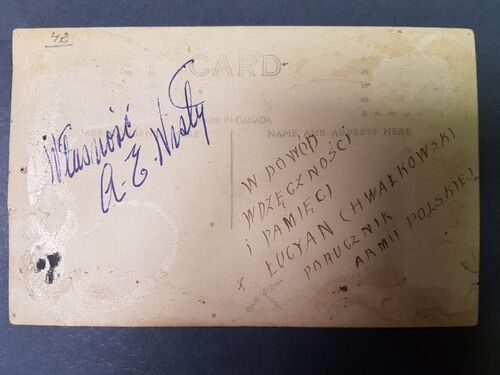 42
POST CARD
MADE IN CANADA
NAME AND ADDRESS HERE
Własność
A-E. Nisły
W DOWÓD
WDZĘCZNOŚCI
I PAMIĘCI
ŁUCYAN CHWAŁKOWSKI
PORUCZNIK
ARMII POLSKIEJ